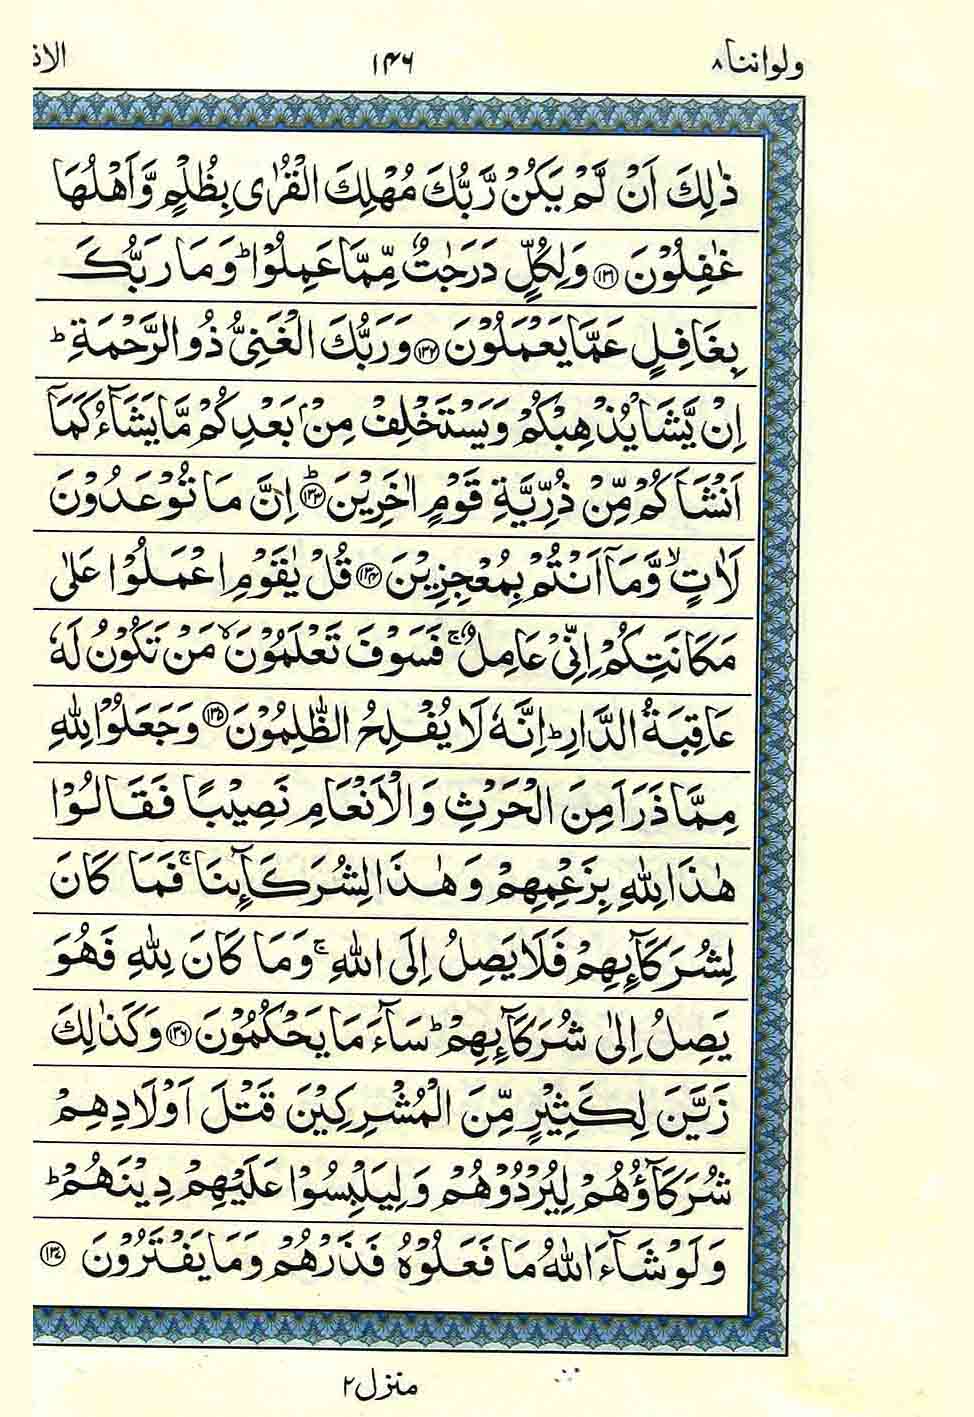 ولواننا ۸
۱۴۶
الان
ذٰلِكَ اَنْ لَّمْ يَكُنْ رَّبُّكَ مُهْلِكَ الْقُرٰى بِظُلْمٍ وَّاَهْلُهَا
غٰفِلُوْنَ ﴿۱۳۱﴾ وَلِكُلٍّ دَرَجٰتٌ مِّمَّا عَمِلُوْا ؕ وَمَا رَبُّكَ
بِغَافِلٍ عَمَّا يَعْمَلُوْنَ ﴿۱۳۲﴾ وَرَبُّكَ الْغَنِىُّ ذُو الرَّحْمَةِ ؕ
اِنْ يَّشَاْ يُذْهِبْكُمْ وَيَسْتَخْلِفْ مِنْۢ بَعْدِكُمْ مَّا يَشَآءُ كَمَاۤ
اَنْشَاَكُمْ مِّنْ ذُرِّيَّةِ قَوْمٍ اٰخَرِيْنَ ﴿۱۳۳﴾ؕ اِنَّ مَا تُوْعَدُوْنَ
لَاٰتٍ ۙ وَّمَاۤ اَنْتُمْ بِمُعْجِزِيْنَ ﴿۱۳۴﴾ قُلْ يٰقَوْمِ اعْمَلُوْا عَلٰى
مَكَانَتِكُمْ اِنِّىْ عَامِلٌ ۚ فَسَوْفَ تَعْلَمُوْنَ ۙ مَنْ تَكُوْنُ لَهٗ
عَاقِبَةُ الدَّارِ ؕ اِنَّهٗ لَا يُفْلِحُ الظّٰلِمُوْنَ ﴿۱۳۵﴾ وَجَعَلُوْا لِلّٰهِ
مِمَّا ذَرَاَ مِنَ الْحَرْثِ وَالْاَنْعَامِ نَصِيْبًا فَقَالُوْا
هٰذَا لِلّٰهِ بِزَعْمِهِمْ وَهٰذَا لِشُرَكَآئِنَا ۚ فَمَا كَانَ
لِشُرَكَآئِهِمْ فَلَا يَصِلُ اِلَى اللّٰهِ ۚ وَمَا كَانَ لِلّٰهِ فَهُوَ
يَصِلُ اِلٰى شُرَكَآئِهِمْ ؕ سَآءَ مَا يَحْكُمُوْنَ ﴿۱۳۶﴾ وَكَذٰلِكَ
زَيَّنَ لِكَثِيْرٍ مِّنَ الْمُشْرِكِيْنَ قَتْلَ اَوْلَادِهِمْ
شُرَكَآؤُهُمْ لِيُرْدُوْهُمْ وَلِيَلْبِسُوْا عَلَيْهِمْ دِيْنَهُمْ ؕ
وَلَوْ شَآءَ اللّٰهُ مَا فَعَلُوْهُ فَذَرْهُمْ وَمَا يَفْتَرُوْنَ ﴿۱۳۷﴾
منزل ۲